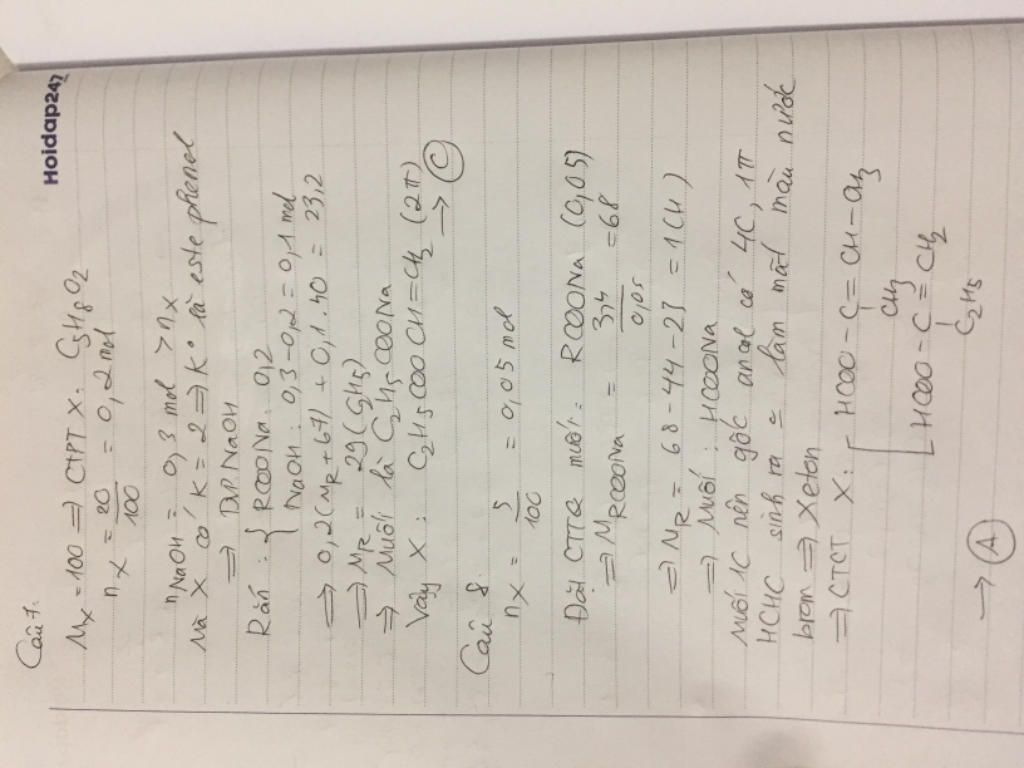 Hoidap247
Câu 7.
Mx = 100 ⟹ CTPT X: C5H8O2
nx = 20/100 = 0,2 mol
nNaOH = 0,3 mol > nx
Mà X có k = 2 ⟹ k° là este phenol
⟹ D/P NaOH
Rắn: { RCOONa: 0,2
NaOH: 0,3-0,2 = 0,1 mol
⟹ 0,2(MR + 67) + 0,1.40 = 23,2
⟹ MR = 29 (C2H5)
⟹ Muối là C2H5COONa
Vậy X: C2H5COOCH=CH2 (2π)
→ C
Câu 8.
nx = 5/100 = 0,05 mol
Đặt CTTQ muối: RCOONa (0,05)
⟹ MRCOONa = 3,4/0,05 = 68
⟹ MR = 68-44-23 = 1 (H)
⟹ Muối: HCOONa
Muối 1C nên gốc ancol có 4C, 1π
HCHC sinh ra = làm mất màu nước
brom ⟹ Xeton
⟹ CTCT X: [ HCOO-C=CH-CH3
CH3
HCOO-C=CH2
C2H5
→ A